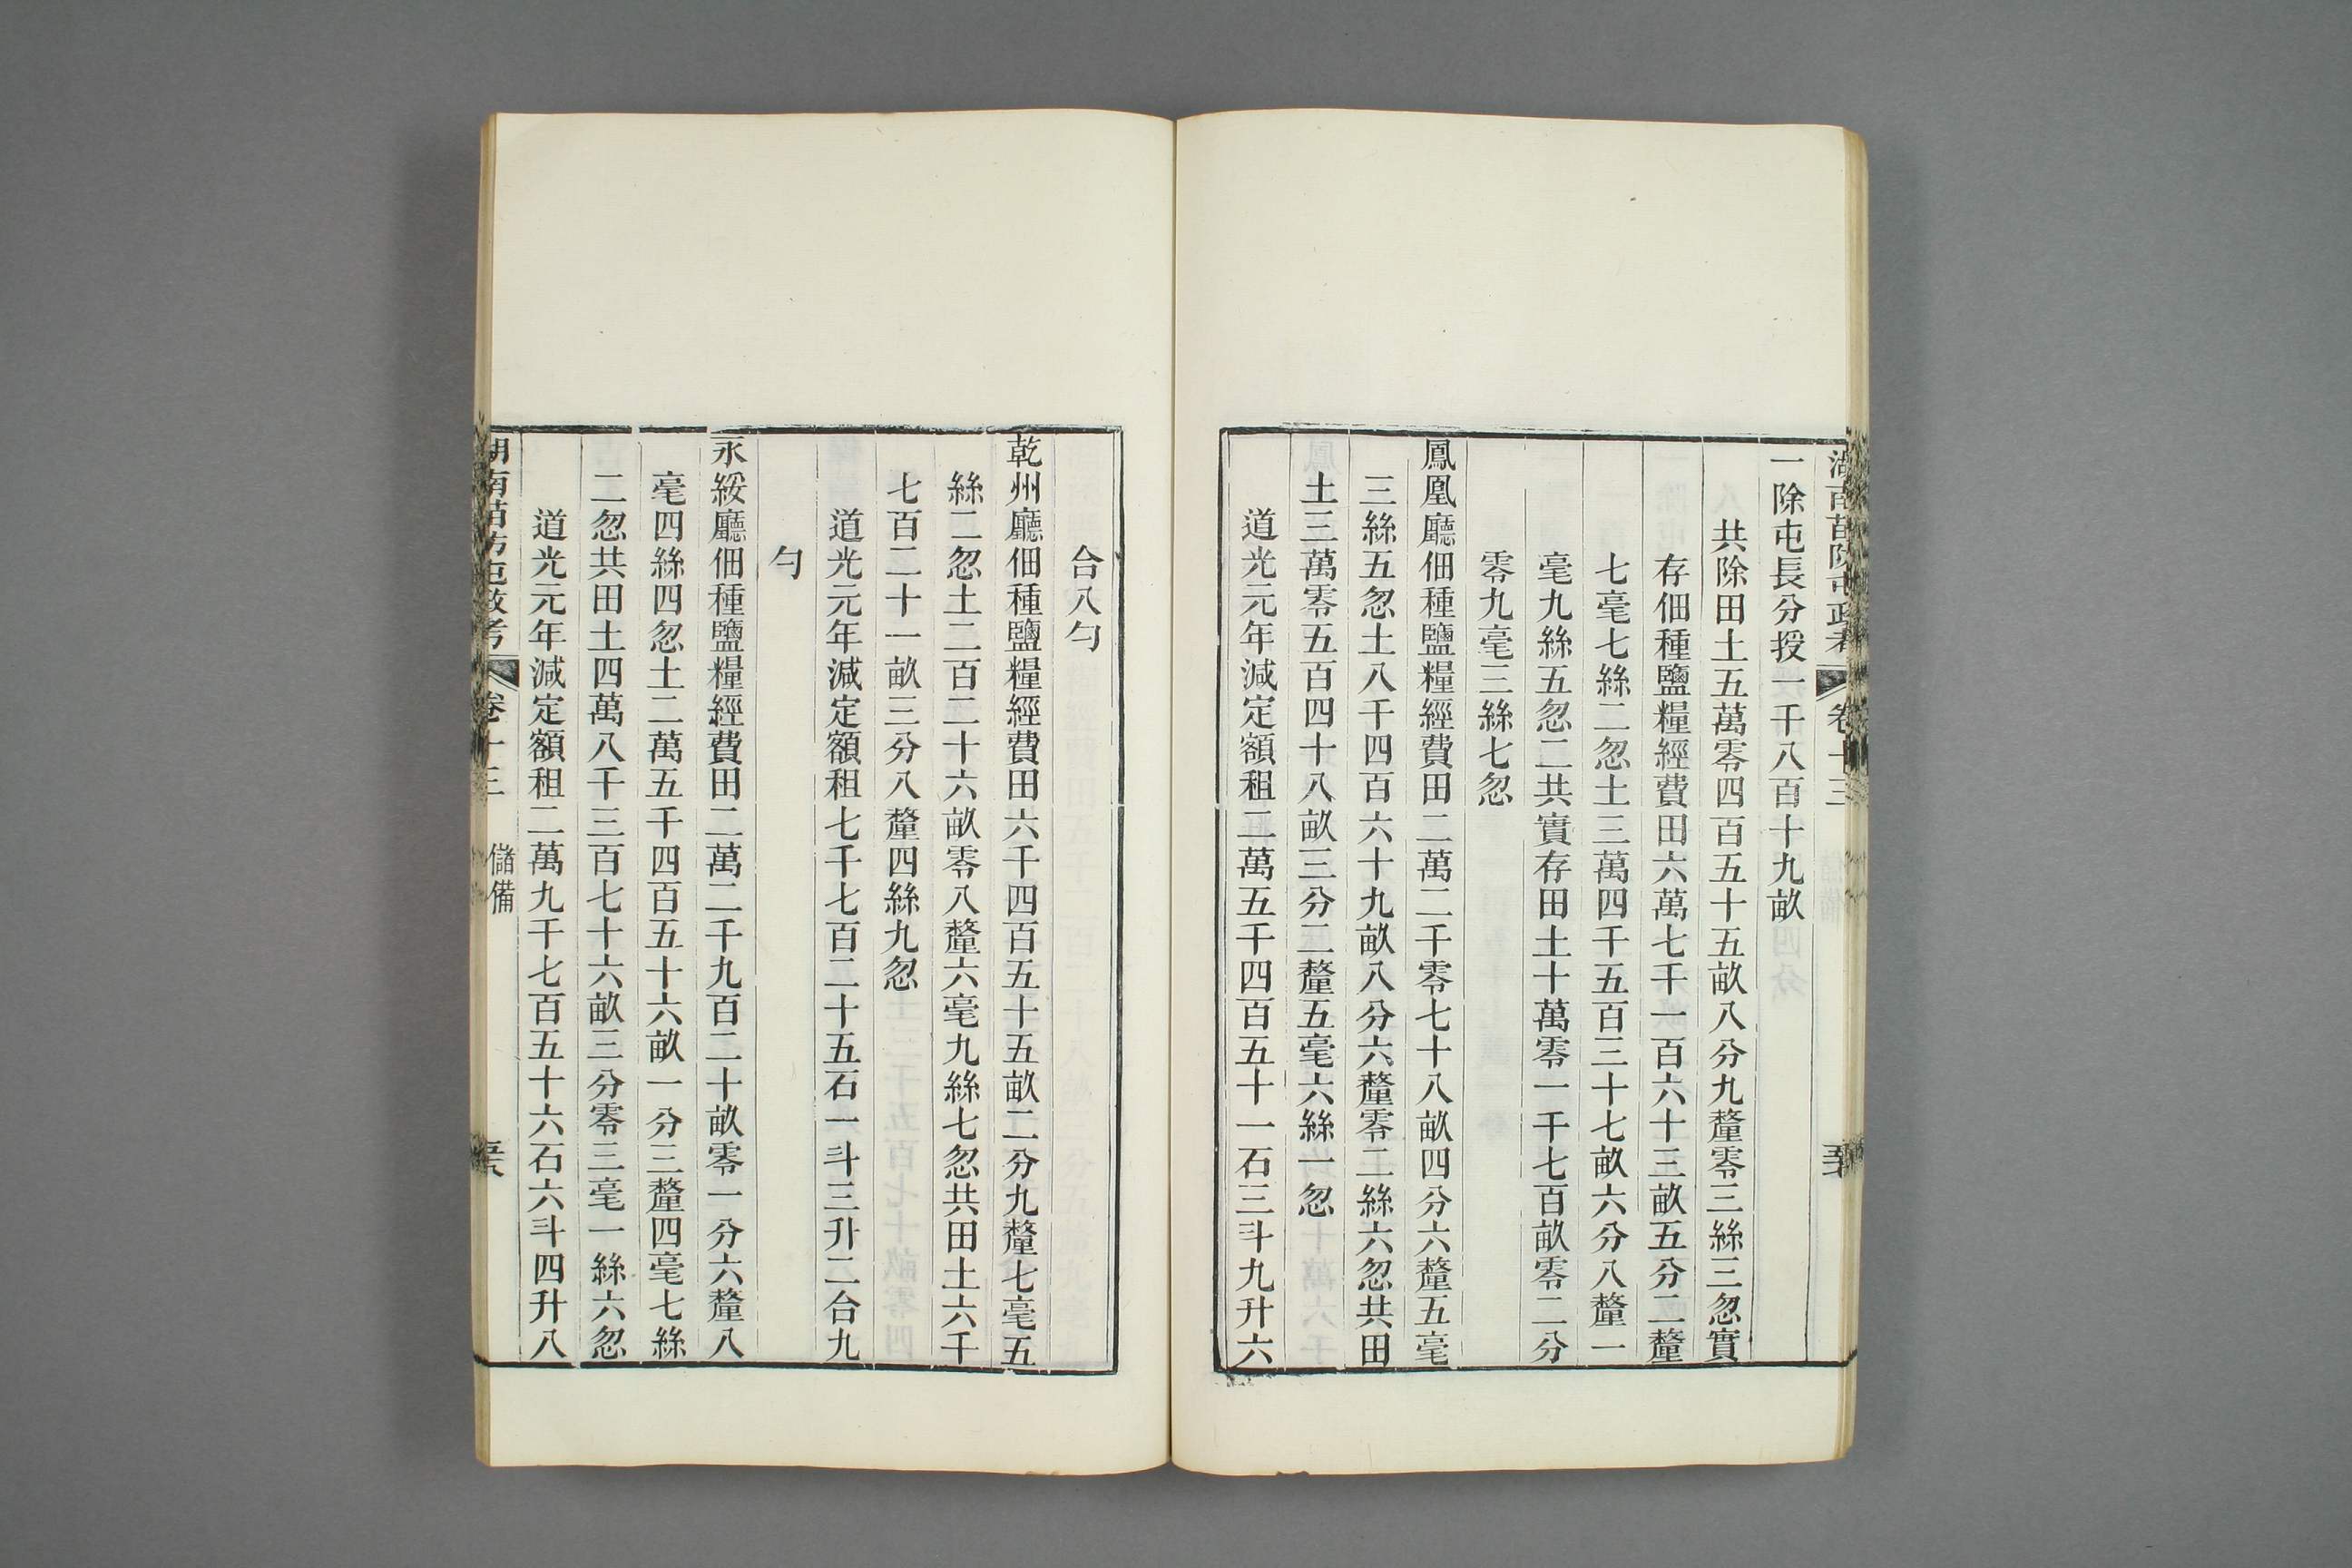 一除屯長分授一千八百十九畝
共除田土五萬零四百五十五畝八分九釐零三絲三忽實
存佃種鹽糧經費田六萬七千一百六十三畝五分二釐
七毫七絲二忽土三萬四千五百三十七畝六分八釐一
毫九絲五忽二共實存田土十萬零一千七百畝零二分
零九毫三絲七忽
鳳凰廳佃種鹽糧經費田二萬二千零七十八畝四分六釐五毫
三絲五忽土八千四百六十九畝八分六釐零二絲六忽共田
土三萬零五百四十八畝三分二釐五毫六絲一忽
道光元年減定額租二萬五千四百五十一石三斗九升六
合八勺
乾州廳佃種鹽糧經費田六千四百五十五畝二分九釐七毫五
絲二忽土二百二十六畝零八釐六毫九絲七忽共田土六千
七百二十一畝三分八釐四絲九忽
道光元年減定額租七千七百二十五石一斗三升二合九
勺
永綏廳佃種鹽糧經費田二萬二千九百二十畝零一分六釐八
毫四絲四忽土二萬五千四百五十六畝一分三釐四毫七絲
二忽共田土四萬八千三百七十六畝三分零三毫一絲六忽
道光元年減定額租二萬九千七百五十六石六斗四升八
湖南苗防屯政考 卷十三 儲備